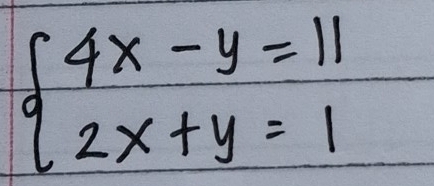 4x - y = 11
2x + y = 1